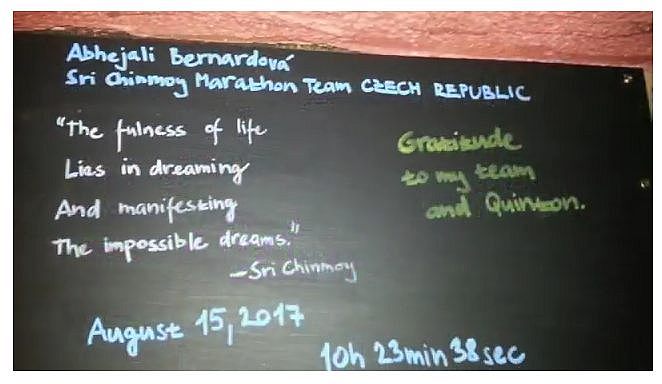 Abhejali Bernardová
Sri Chinmoy Marathon Team CZECH REPUBLIC
"The fulness of life
Lies in dreaming
And manifesting
The impossible dreams."
—Sri Chinmoy
Gratitude
to my team
and Quinton.
August 15, 2017
10h 23min 38sec